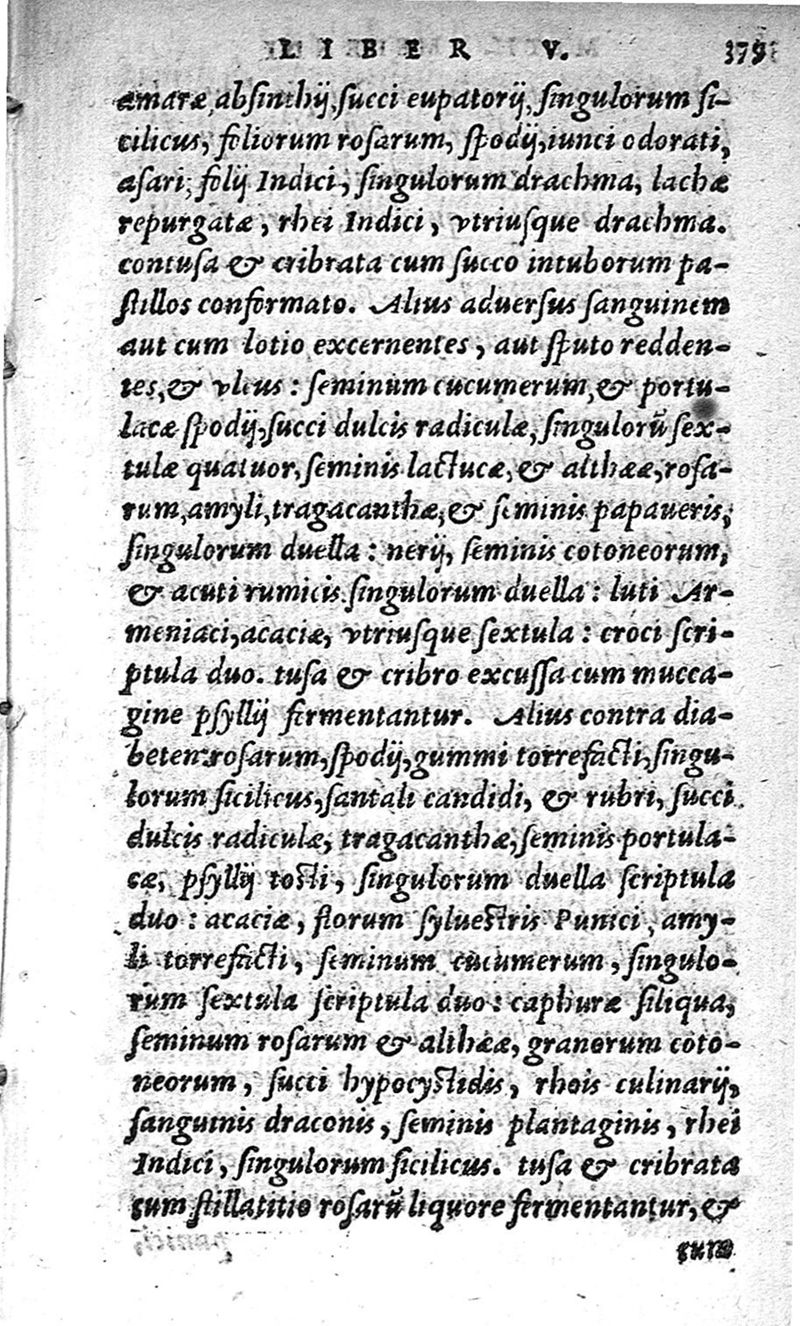 LIBER V. 379
amaræ, absinthij, succi eupatorij, singulorum si-
cilicus, foliorum rosarum, spodij, iunci odorati,
asari, folij Indici, singulorum drachma, lachæ
repurgatæ, rhei Indici, vtriusque drachma.
contusa & cribrata cum succo intuborum pa-
stillos conformato. Alius aduersus sanguinem
aut cum lotio excernentes, aut sputo redden-
tes, & vlcus : seminum cucumerum, & portu-
lacæ spodij, succi dulcis radiculæ, singulorũ sex-
tulæ quatuor, seminis lactucæ, & altheæ, rosa-
rum, amyli, tragacanthæ, & seminis papaueris,
singulorum duella : nerij, seminis cotoneorum,
& acuti rumicis singulorum duella : luti Ar-
meniaci, acaciæ, vtriusque sextula : croci scri-
ptula duo. tusa & cribro excussa cum mucca-
gine psyllij fermentantur. Alius contra dia-
beten: rosarum, spodij, gummi torrefacti, singu-
lorum sicilicus, santali candidi, & rubri, succi
dulcis radiculæ, tragacanthæ, seminis portula-
cæ, psyllij tosti, singulorum duella scriptula
duo : acaciæ, florum syluestris Punici, amy-
li torrefacti, seminum cucumerum, singulo-
rum sextula scriptula duo : caphuræ siliqua,
seminum rosarum & altheæ, granorum coto-
neorum, succi hypocystidis, rhois culinarij,
sanguinis draconis, seminis plantaginis, rhei
Indici, singulorum sicilicus. tusa & cribrata
cum stillatitio rosarũ liquore fermentantur, &
cum